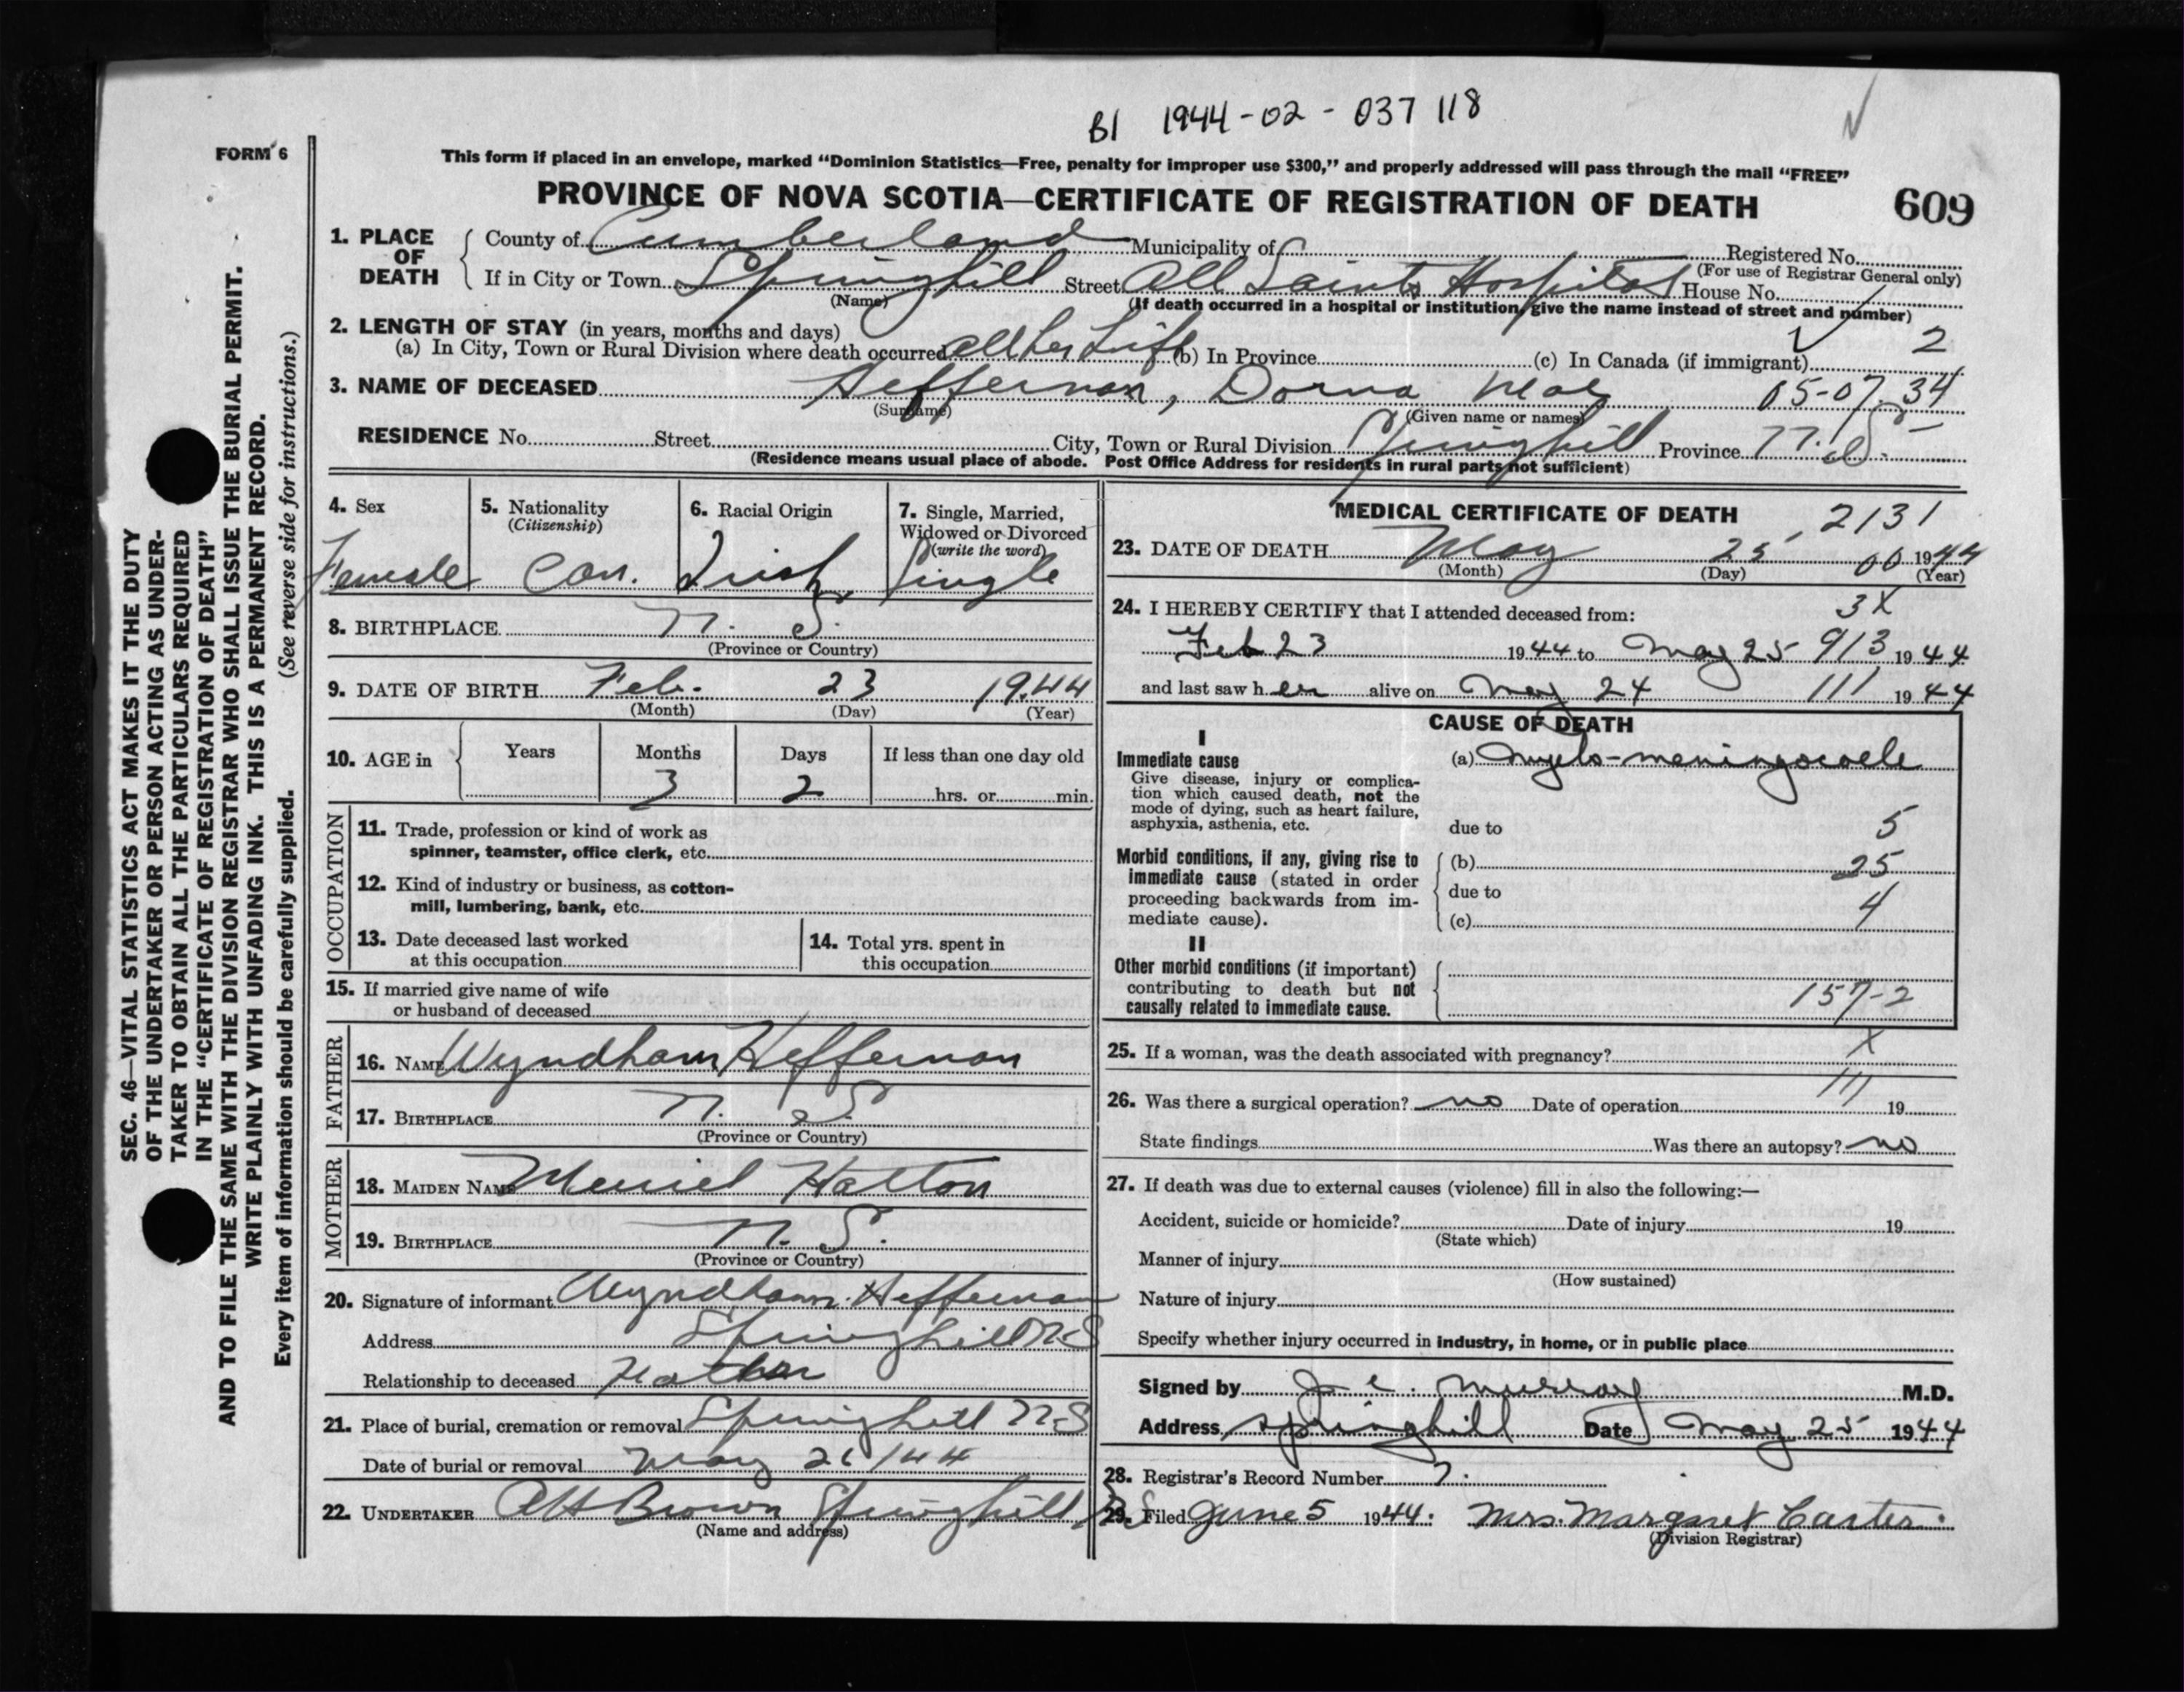 B1 1944-02-037118
FORM 6
This form if placed in an envelope, marked “Dominion Statistics—Free, penalty for improper use $300,” and properly addressed will pass through the mail “FREE”
PROVINCE OF NOVA SCOTIA—CERTIFICATE OF REGISTRATION OF DEATH 609
1. PLACE OF DEATH
County of Cumberland Municipality of Registered No.
(For use of Registrar General only)
If in City or Town Springhill Street All Saints Hospital House No.
(Name) (If death occurred in a hospital or institution, give the name instead of street and number)
2. LENGTH OF STAY (in years, months and days)
(a) In City, Town or Rural Division where death occurred all her Life (b) In Province (c) In Canada (if immigrant) 2
3. NAME OF DECEASED Heffernan, Dorna Mae 05-07.34
(Surname) (Given name or names)
RESIDENCE No. Street City, Town or Rural Division Springhill Province N.S.
(Residence means usual place of abode. Post Office Address for residents in rural parts not sufficient)
4. Sex Female
5. Nationality (Citizenship) Can.
6. Racial Origin Irish
7. Single, Married, Widowed or Divorced (write the word) Single
8. BIRTHPLACE N. S.
(Province or Country)
9. DATE OF BIRTH Feb. 23 1944
(Month) (Day) (Year)
10. AGE in Years Months Days If less than one day old
3 2 hrs. or min.
OCCUPATION
11. Trade, profession or kind of work as
spinner, teamster, office clerk, etc.
12. Kind of industry or business, as cotton-
mill, lumbering, bank, etc.
13. Date deceased last worked
at this occupation
14. Total yrs. spent in
this occupation
15. If married give name of wife
or husband of deceased
FATHER
16. NAME Wyndham Heffernan
17. BIRTHPLACE N. S.
(Province or Country)
MOTHER
18. MAIDEN NAME Muriel Hatton
19. BIRTHPLACE N. S.
(Province or Country)
20. Signature of informant Wyndham Heffernan
Address Springhill NS
Relationship to deceased Father
21. Place of burial, cremation or removal Springhill NS
Date of burial or removal May 26/44
22. UNDERTAKER AH Brown Springhill NS
(Name and address)
MEDICAL CERTIFICATE OF DEATH 2131
23. DATE OF DEATH May 25 00 1944
(Month) (Day) (Year)
24. I HEREBY CERTIFY that I attended deceased from: 3X
Feb 23 1944 to May 25 913 1944
and last saw her alive on May 24 111 1944
CAUSE OF DEATH
I
Immediate cause (a) Myelo-meningocoele
Give disease, injury or complica-
tion which caused death, not the
mode of dying, such as heart failure,
asphyxia, asthenia, etc.
due to 5
Morbid conditions, if any, giving rise to
immediate cause (stated in order
proceeding backwards from im-
mediate cause).
(b) 25
due to 4
(c)
II
Other morbid conditions (if important)
contributing to death but not
causally related to immediate cause.
157-2
25. If a woman, was the death associated with pregnancy? X
111
26. Was there a surgical operation? no Date of operation 19
State findings Was there an autopsy? no
27. If death was due to external causes (violence) fill in also the following:—
Accident, suicide or homicide? Date of injury 19
(State which)
Manner of injury
(How sustained)
Nature of injury
Specify whether injury occurred in industry, in home, or in public place
Signed by J. C. Murray M.D.
Address Springhill Date May 25 1944
28. Registrar's Record Number 7.
29. Filed June 5 1944. Mrs. Margaret Carter.
(Division Registrar)
SEC. 46—VITAL STATISTICS ACT MAKES IT THE DUTY
OF THE UNDERTAKER OR PERSON ACTING AS UNDER-
TAKER TO OBTAIN ALL THE PARTICULARS REQUIRED
IN THE “CERTIFICATE OF REGISTRATION OF DEATH”
AND TO FILE THE SAME WITH THE DIVISION REGISTRAR WHO SHALL ISSUE THE BURIAL PERMIT.
WRITE PLAINLY WITH UNFADING INK. THIS IS A PERMANENT RECORD.
Every item of information should be carefully supplied. (See reverse side for instructions.)